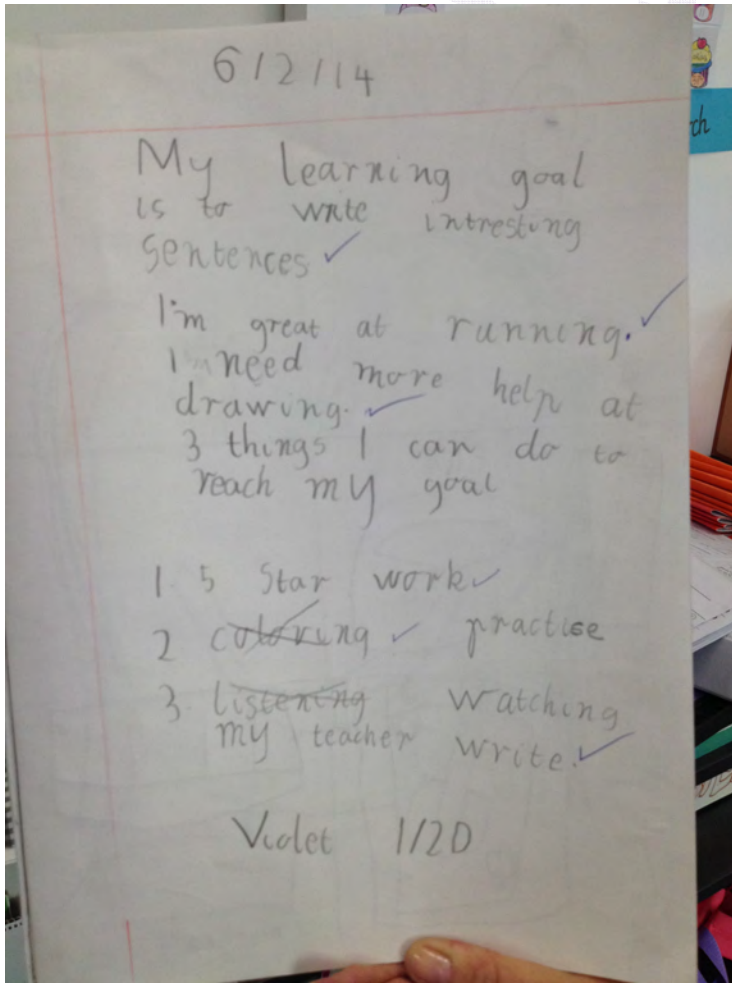 6/2/14
My learning goal
is to write intresting
sentences ✓
I'm great at running. ✓
I need more help at
drawing. ✓
3 things I can do to
reach my goal
1. 5 Star work ✓
2 coloring ✓ practise
3. listening watching
my teacher write. ✓
Violet 1/2D